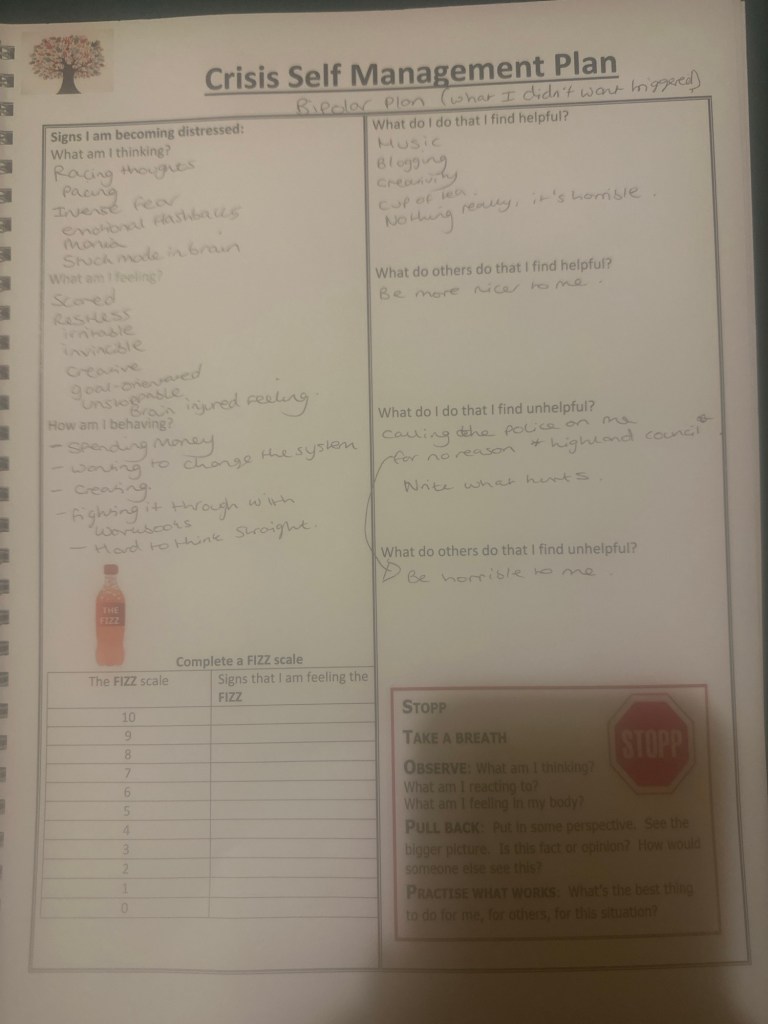 Crisis Self Management Plan
Bipolar Plan (what I didn't want triggered)
Signs I am becoming distressed:
What am I thinking?
Racing thoughts
Pacing
Intense fear
emotional flashbacks
mania
Stuck mode in brain
What am I feeling?
Scared
Restless
irritable
invincible
Creative
goal-orientated
Unstoppable
Brain injured feeling.
How am I behaving?
- Spending money
- wanting to change the system
- Creating.
- fighting it through with
workbooks
- Hard to think straight.
THE
FIZZ
Complete a FIZZ scale
The FIZZ scale
Signs that I am feeling the
FIZZ
10
9
8
7
6
5
4
3
2
1
0
What do I do that I find helpful?
Music
Blogging
Creativity
Cup of tea.
Nothing really, it's horrible.
What do others do that I find helpful?
Be more nicer to me.
What do I do that I find unhelpful?
Calling the Police on me
for no reason + highland council
Write what hurts.
What do others do that I find unhelpful?
Be horrible to me.
STOPP
TAKE A BREATH
STOPP
OBSERVE: What am I thinking?
What am I reacting to?
What am I feeling in my body?
PULL BACK: Put in some perspective. See the
bigger picture. Is this fact or opinion? How would
someone else see this?
PRACTISE WHAT WORKS: What's the best thing
to do for me, for others, for this situation?